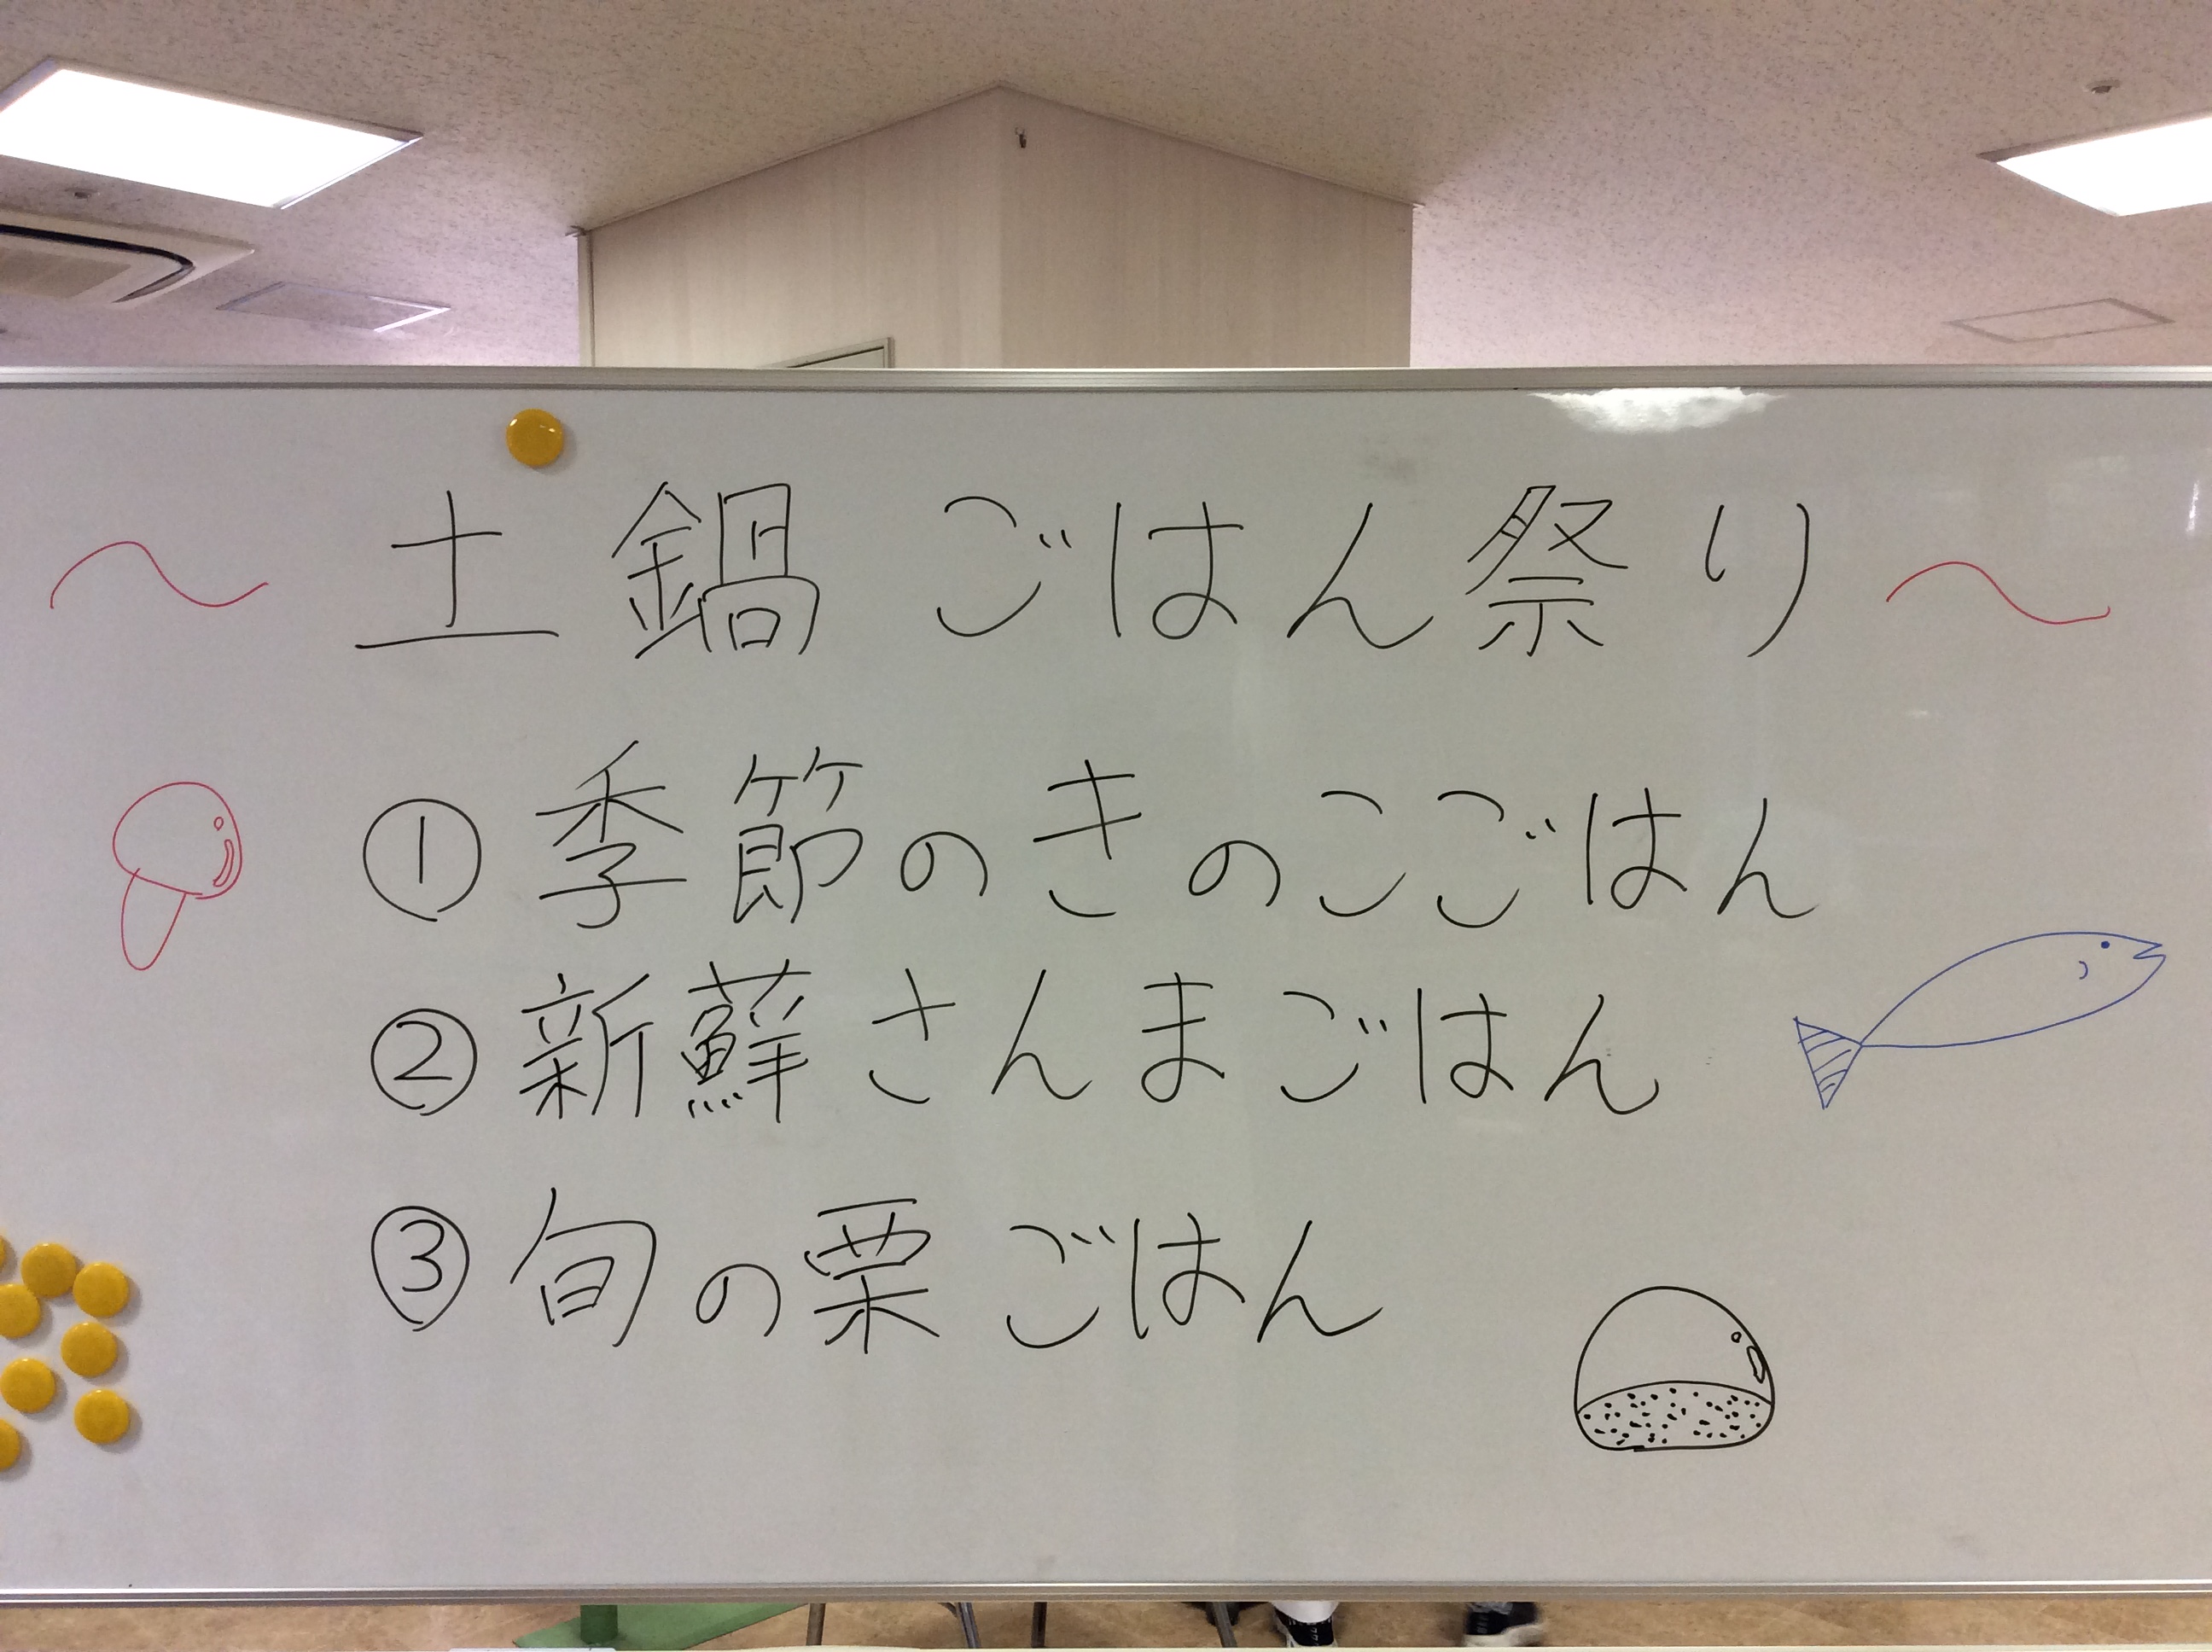 ～土鍋ごはん祭り～
①季節のきのこごはん
②新蘚さんまごはん
③旬の栗ごはん